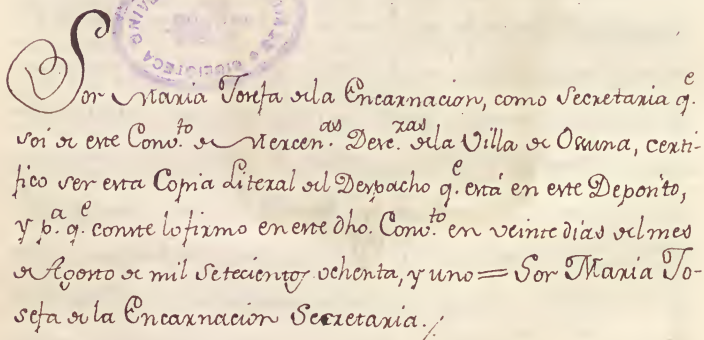 BIBLIOTECA
Sor Maria Josefa de la Encarnacion, como Secretaria q.e
soi de este Conv.to de Mercen.as Desc.zas de la Villa de Osuna, certi-
fico ser esta Copia Literal del Despacho q.e está en este Deposito,
y p.a q.e conste lo firmo en este dho. Conv.to en veinte dias del mes
de Agosto de mil setecientos ochenta, y uno = Sor Maria Jo-
sefa de la Encarnacion Secretaria.